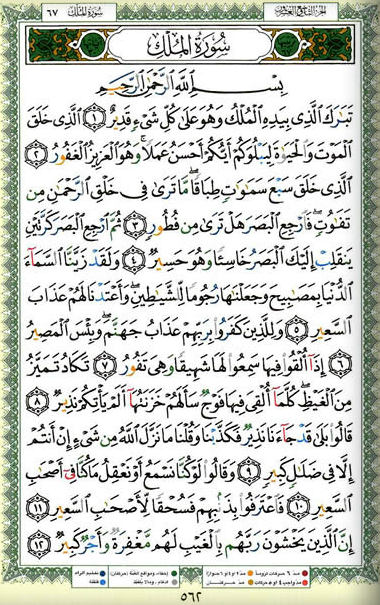 سُورَةُ المُلْكِ ٦٧
الجزء التاسع والعشرون
سُورَةُ المُلْكِ
بِسْمِ ٱللَّهِ ٱلرَّحْمَٰنِ ٱلرَّحِيمِ
تَبَٰرَكَ ٱلَّذِى بِيَدِهِ ٱلْمُلْكُ وَهُوَ عَلَىٰ كُلِّ شَىْءٍ قَدِيرٌ ١ ٱلَّذِى خَلَقَ
ٱلْمَوْتَ وَٱلْحَيَوٰةَ لِيَبْلُوَكُمْ أَيُّكُمْ أَحْسَنُ عَمَلًا وَهُوَ ٱلْعَزِيزُ ٱلْغَفُورُ ٢
ٱلَّذِى خَلَقَ سَبْعَ سَمَٰوَٰتٍ طِبَاقًا مَّا تَرَىٰ فِى خَلْقِ ٱلرَّحْمَٰنِ مِن
تَفَٰوُتٍ فَٱرْجِعِ ٱلْبَصَرَ هَلْ تَرَىٰ مِن فُطُورٍ ٣ ثُمَّ ٱرْجِعِ ٱلْبَصَرَ كَرَّتَيْنِ
يَنقَلِبْ إِلَيْكَ ٱلْبَصَرُ خَاسِئًا وَهُوَ حَسِيرٌ ٤ وَلَقَدْ زَيَّنَّا ٱلسَّمَآءَ
ٱلدُّنْيَا بِمَصَٰبِيحَ وَجَعَلْنَٰهَا رُجُومًا لِّلشَّيَٰطِينِ وَأَعْتَدْنَا لَهُمْ عَذَابَ
ٱلسَّعِيرِ ٥ وَلِلَّذِينَ كَفَرُوا۟ بِرَبِّهِمْ عَذَابُ جَهَنَّمَ وَبِئْسَ ٱلْمَصِيرُ
٦ إِذَآ أُلْقُوا۟ فِيهَا سَمِعُوا۟ لَهَا شَهِيقًا وَهِىَ تَفُورُ ٧ تَكَادُ تَمَيَّزُ
مِنَ ٱلْغَيْظِ كُلَّمَآ أُلْقِىَ فِيهَا فَوْجٌ سَأَلَهُمْ خَزَنَتُهَآ أَلَمْ يَأْتِكُمْ نَذِيرٌ ٨
قَالُوا۟ بَلَىٰ قَدْ جَآءَنَا نَذِيرٌ فَكَذَّبْنَا وَقُلْنَا مَا نَزَّلَ ٱللَّهُ مِن شَىْءٍ إِنْ أَنتُمْ
إِلَّا فِى ضَلَٰلٍ كَبِيرٍ ٩ وَقَالُوا۟ لَوْ كُنَّا نَسْمَعُ أَوْ نَعْقِلُ مَا كُنَّا فِىٓ أَصْحَٰبِ
ٱلسَّعِيرِ ١٠ فَٱعْتَرَفُوا۟ بِذَنۢبِهِمْ فَسُحْقًا لِّأَصْحَٰبِ ٱلسَّعِيرِ ١١
إِنَّ ٱلَّذِينَ يَخْشَوْنَ رَبَّهُم بِٱلْغَيْبِ لَهُم مَّغْفِرَةٌ وَأَجْرٌ كَبِيرٌ ١٢
مد ٦ حركات لزوماً مد ٢ او ٤ او ٦ جوازاً إخفاء، ومواقع الغنة (حركتان) تفخيم الراء
مد واجب ٤ او ٥ حركات مد حركتان إدغام، وما لا يلفظ قلقلة
٥٦٢